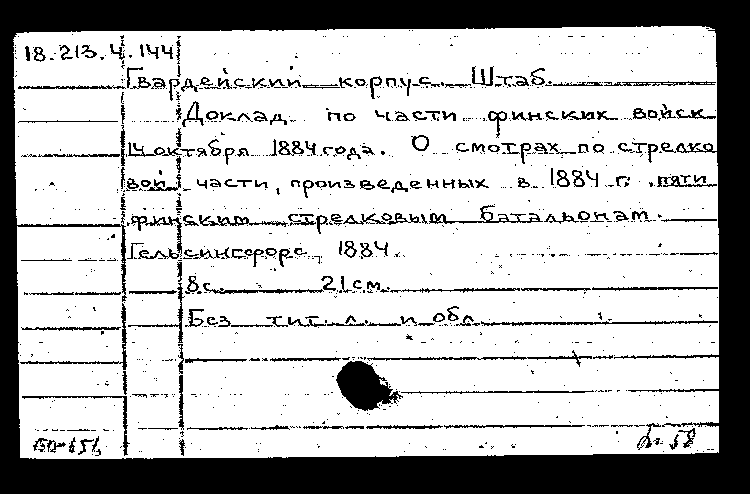 18.213.4.144
Гвардейский корпус. Штаб.
Доклад по части финских войск
14 октября 1884 года. О смотрах по стрелко
вой части, произведенных в 1884 г. пяти
финским стрелковым батальонам.
Гельсингфорс, 1884.
8с. 21см.
Без тит. л. и обл.
58